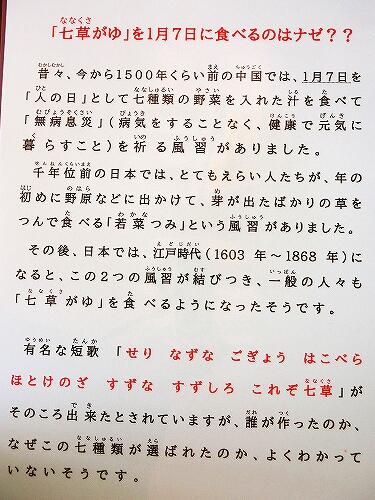 「七草がゆ」を1月7日に食べるのはナゼ？？
昔々、今から1500年くらい前の中国では、1月7日を
「人の日」として七種類の野菜を入れた汁を食べて
「無病息災」(病気をすることなく、健康で元気に
暮らすこと)を祈る風習がありました。
千年位前の日本では、とてもえらい人たちが、年の
初めに野原などに出かけて、芽が出たばかりの草を
つんで食べる「若菜つみ」という風習がありました。
その後、日本では、江戸時代(1603 年～1868 年)に
なると、この2つの風習が結びつき、一般の人々も
「七草がゆ」を食べるようになったそうです。
有名な短歌 「せり なずな ごぎょう はこべら
ほとけのざ すずな すずしろ これぞ七草」が
そのころ出来たとされていますが、誰が作ったのか、
なぜこの七種類が選ばれたのか、よくわかって
いないそうです。